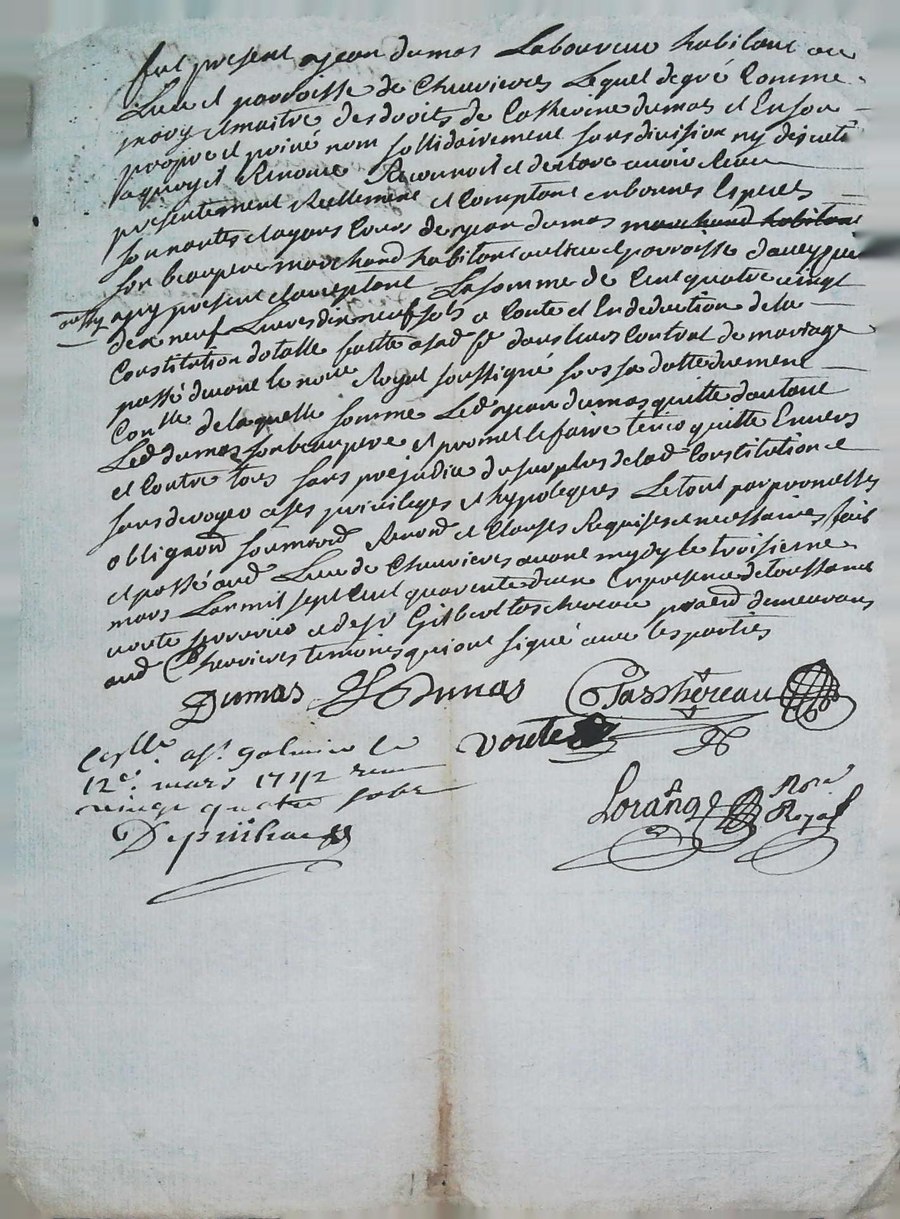 fut present sr jean dumas Laboureur habitant au
Lieu et parroisse de Chevrieres Lequel de gré Comme
mary et maitre des droits de Catherine dumas et En son
propre et privé nom sollidairement sans division ny discution
a quoy il Renonce Reconnoit et declare avoir Receu
presentement Reellement et Comptant en bonnes Especes
sonnantes et ayans Cours de sr jean dumas marchand habitant
son beaupere marchand habitant au lieu et parroisse d'aveyzieu
aussy a ygy present et acceptant La somme de Cent quatre vingt
dix neuf Livres dix neuf sols a Conte et En deduction de la
Constitution dotalle faitte a sad fe dans leurs Contrat de mariage
passé devant le nore Royal soussigné sous sa datte duement
Conlle de laquelle somme Led sr jean dumas quitte d'autant
Led dumas son beaupere et promet le faire tenir quitte Envers
et Contre tous sans prejudice du surplus de lad Constitution et
sans deroger a ses privileges et hypoteques Le tout par promesses
obligaons soumons Renons et Clauses Requises et necessaires fait
et passé aud Lieu de Chevrieres avant mydy le troisieme
mars Lan mil sept Cent quarente deux En presence de toussaint
voute et de sr Gilbert taschereau demeurans
aud Chevrieres temoins qui ont signé avec les parties
Dumas J Dumas G Taschereau
voute
Conlle a St galmier le
12e. mars 1742 receu
vingt quatre sols
Depuihac
Lorang Nore
Royal